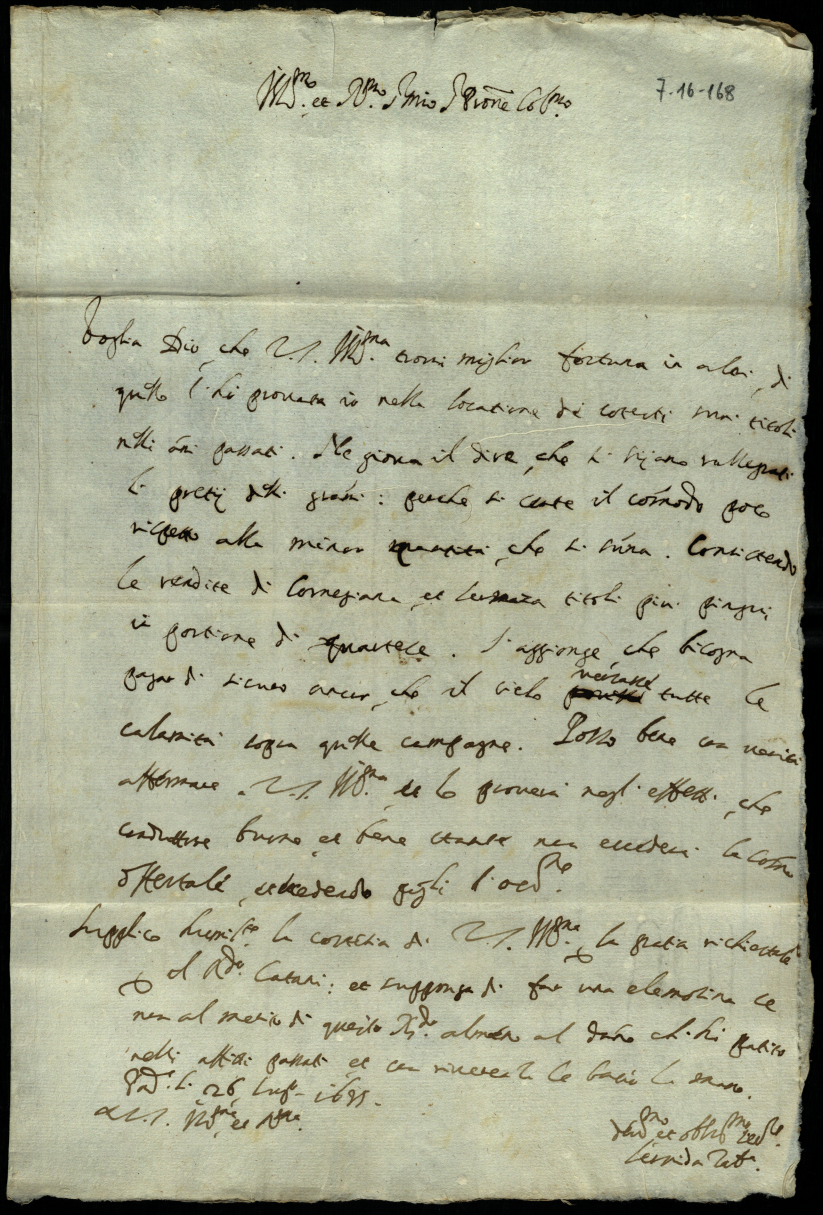 Ill.mo et R.mo S.r mio P.rone Col.mo
7-16-168
Voglia Dio, che V.S. Ill.ma trovi miglior fortuna in altri, di
quello l'hò provata io nella locatione di cotesti suoi titoli
nelli ãni passati. Me giova il dire, che si sijano rallegrati
li pretij delli grani: perche si sente il cõmodo poco
rispetto alla minor quantità, che si
le vendite di Cornegiana, et titoli piu pingui,
in portione di quartese. S'aggionge che bisogna
pagar di sicuro ancor, che il cielo versasse tutte le
calamità sopra quelle campagne. Posso bene con verità
affermare a V.S. Ill.ma, et lo proverà negl'effetti, che
conduttore buono, et bene stante non
offertale,
Supplico la cortesia di V.S. Ill.ma, la gratia richiestale
p el R.do Catani: et supponga di far una elemosina se
non al merito di questo R.do almeno al daño ch'hà patito
nelli affitti passati et con riverenza le bacio la mano.
Pad.a li 26 Lug.o
D V.S. Ill.ma et R.ma
Dev.mo et obblig.mo